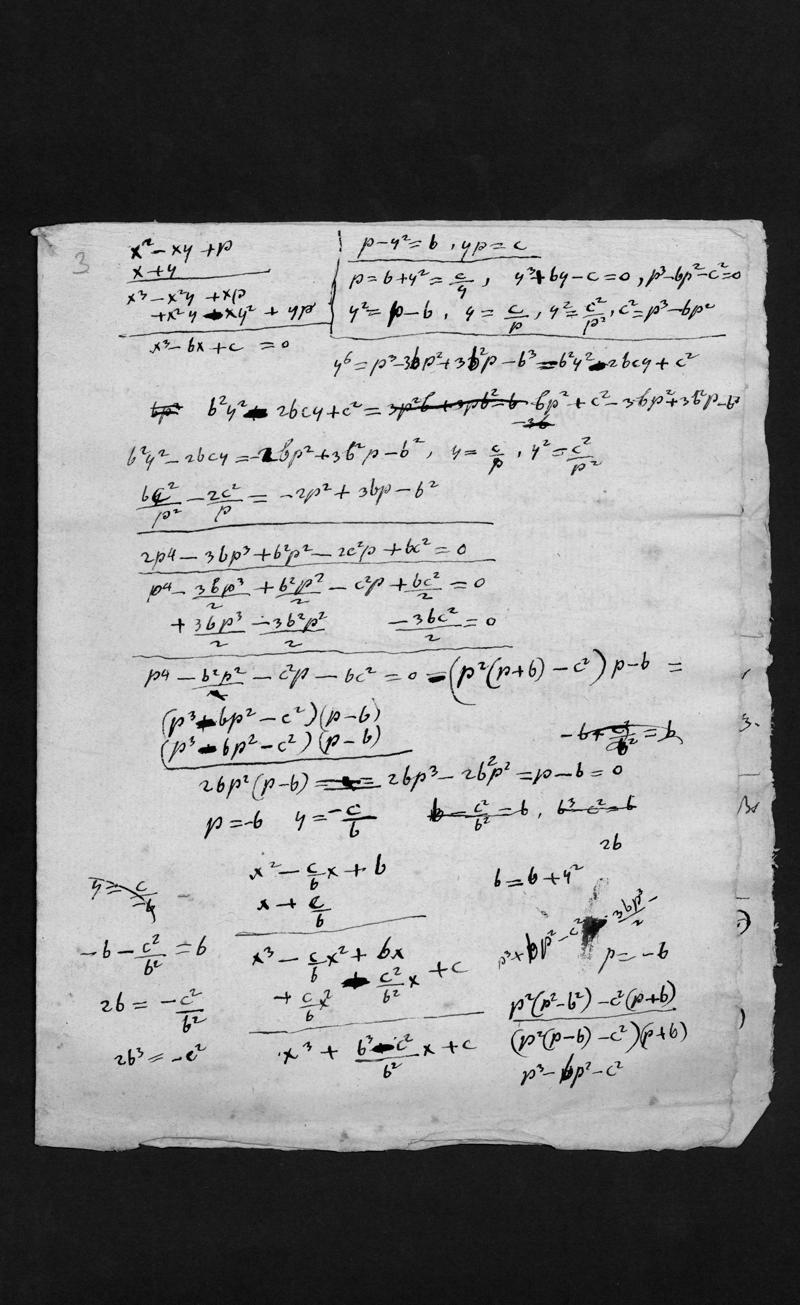 3
x² − xy + p
x + y
x³ − x²y + xp
+ x²y − xy² + yp
x³ − bx + c = 0
p − y² = b , yp = c
p = b + y² = c/y , y³ + by − c = 0 , p³ − bp² − c² = 0
y² = p − b , y = c/p , y² = c²/p² , c² = p³ − bp²
y⁶ = p³ − 3bp² + 3b²p − b³ = b²y² − 2bcy + c²
bp² b²y² − 2bcy + c² = 3p²b + 3pb² − b bp² + c² − 3bp² + 3b²p − b³
−3b
b²y² − 2bcy = −2bp² + 3b²p − b³ , y = c/p , y² = c²/p²
bc²/p² − 2c²/p = −2p² + 3bp − b²
2p4 − 3bp³ + b²p² − 2c²p + bc² = 0
p4 − 3bp³/2 + b²p²/2 − c²p + bc²/2 = 0
+ 3bp³/2 − 3b²p²/2 − 3bc²/2 = 0
p4 − b²p² − c²p − bc² = 0 = (p²(p+b) − c²) p−b =
(p³ + bp² − c²)(p−b)
(p³ − bp² − c²)(p−b)
−b + c²/b² = b
2bp²(p−b) = 2bp³ − 2b²p² = p − b = 0
p = −b y = −c/b b − c²/b² = b , b³ − c² = b
2b
x² − c/b x + b
x + c/b
b = b + y²
y = c/−b
−b − c²/b² = b
x³ − c/b x² + bx
+ c/b x² − c²/b² x + c
p³ + bp² − c² 3bp³/2 −
p = −b
2b = −c²/b²
p²(p² − b²) − c²(p+b)
(p²(p−b) − c²)(p+b)
2b³ = −c²
x³ + b³ − c²/b² x + c
p³ − bp² − c²